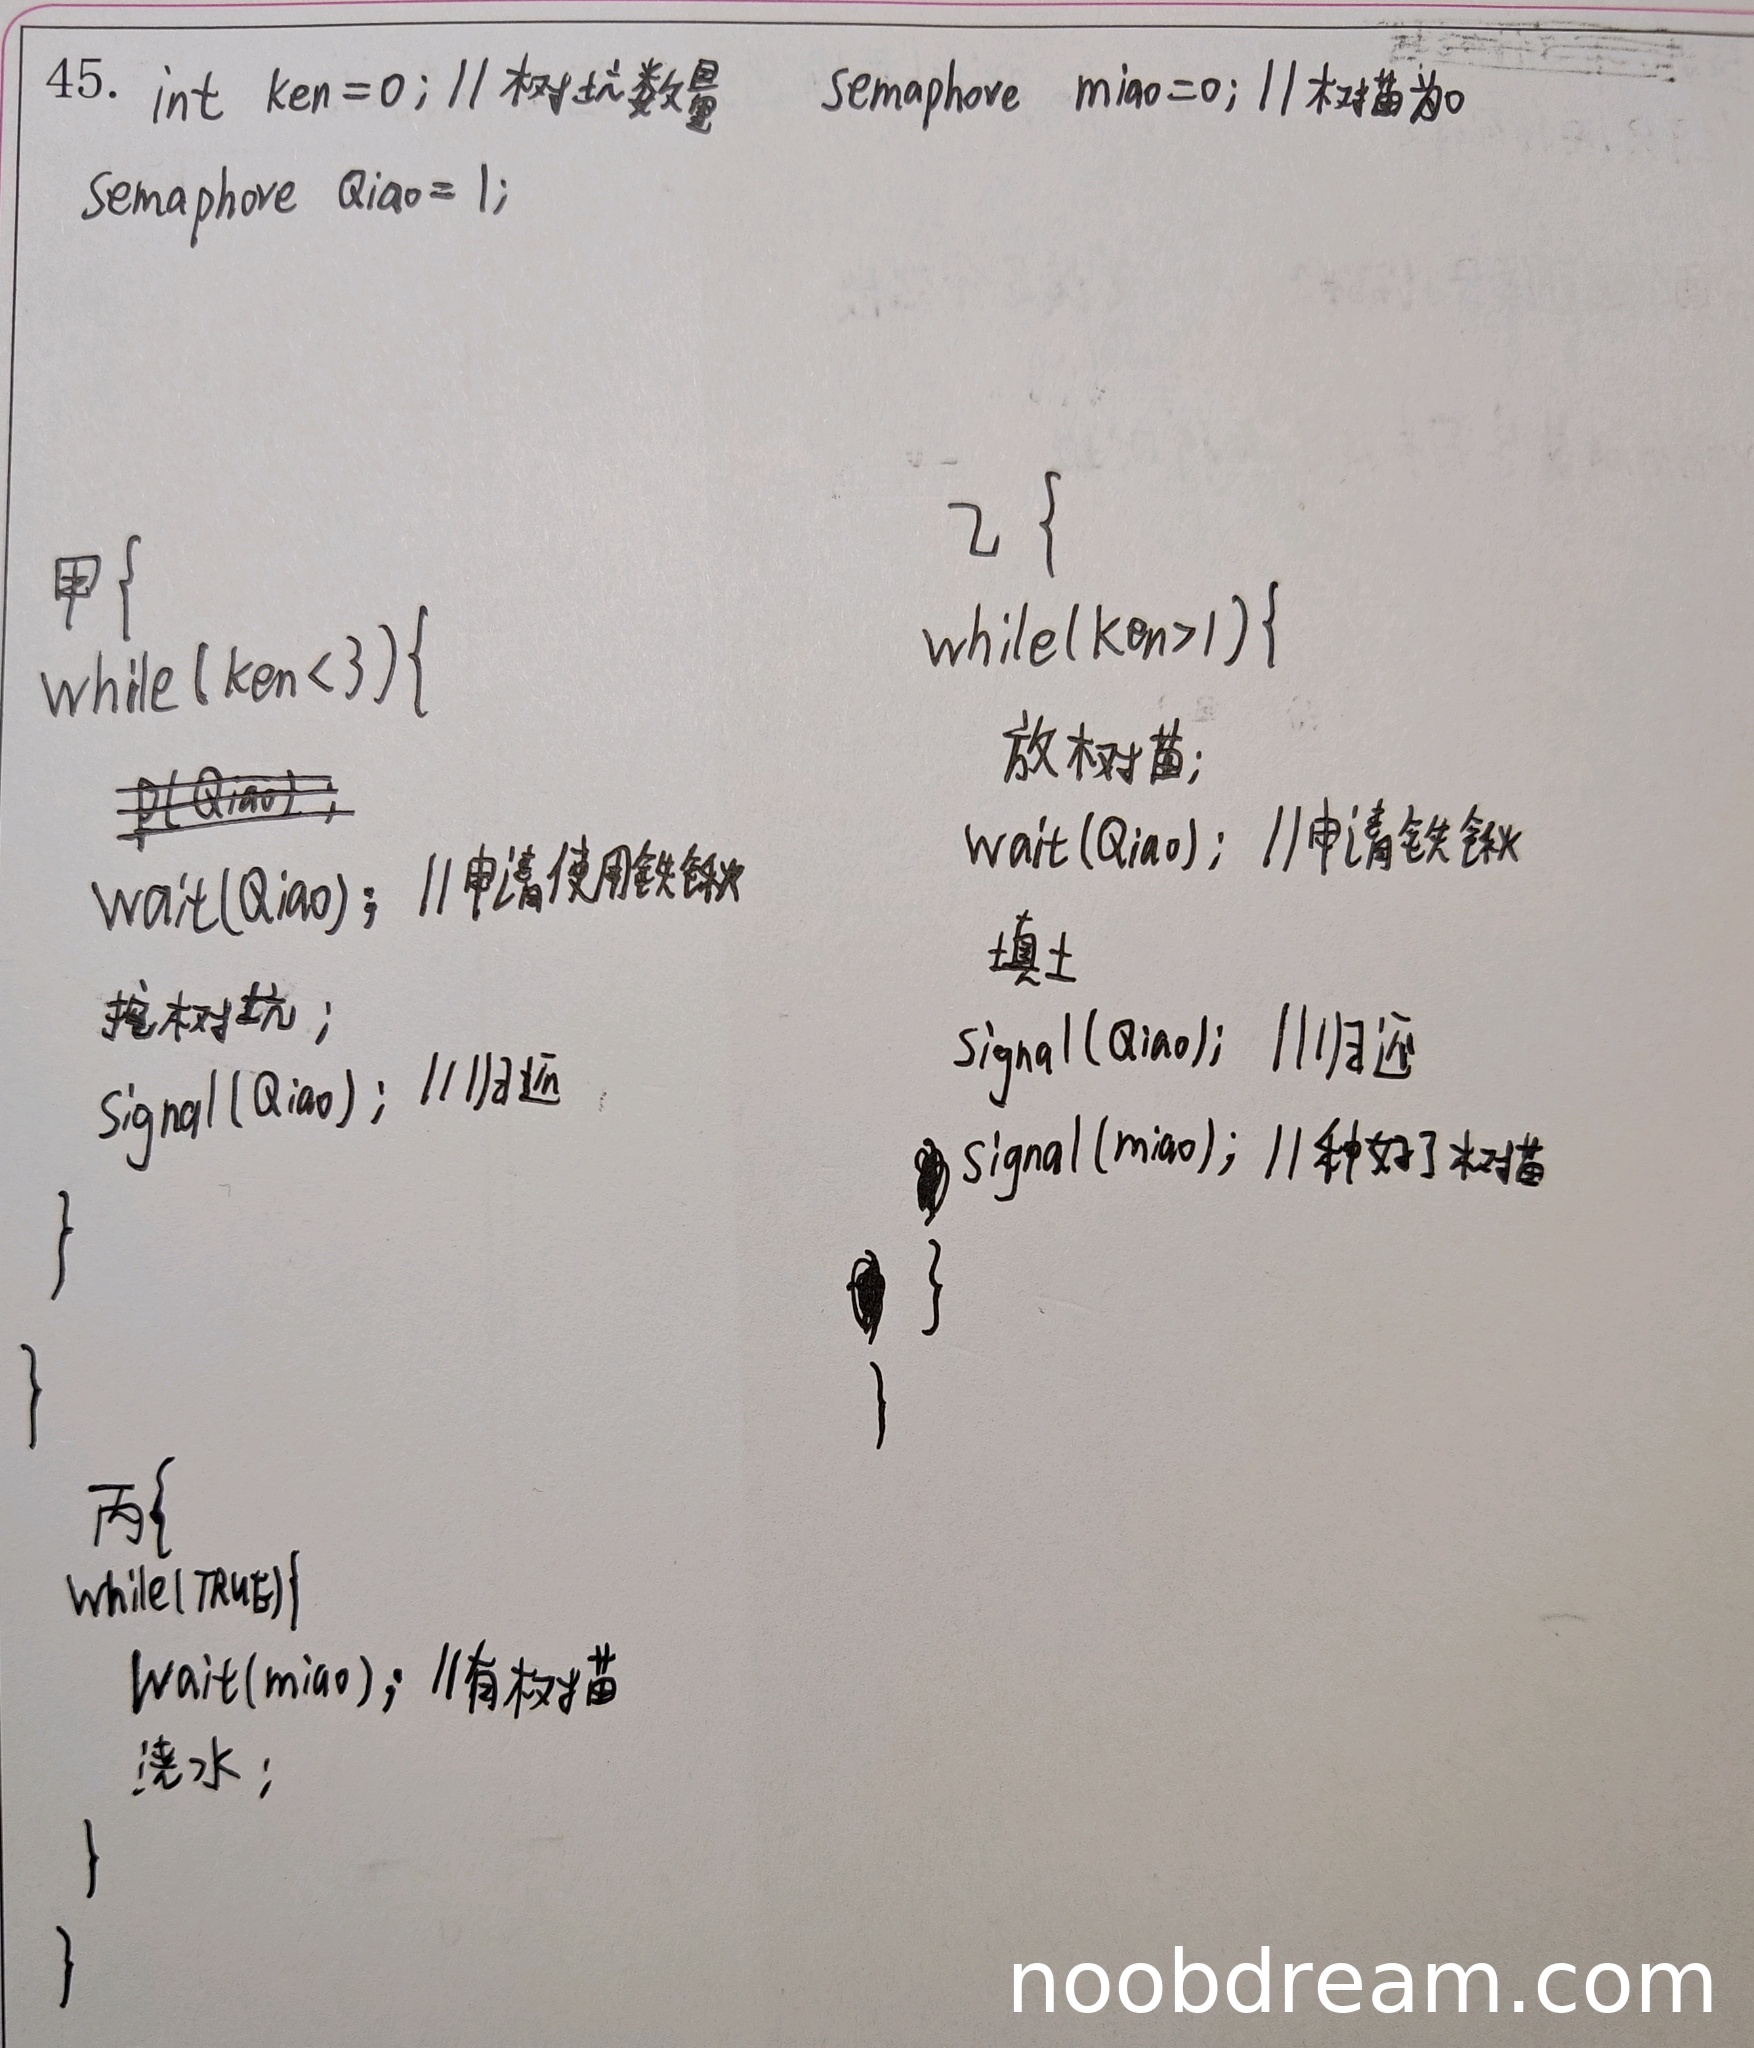 45. int ken=0; //树坑数量 semaphore miao=0; //树苗为0
semaphore Qiao=1;
甲{
while(ken<3){
P(Qiao);
wait(Qiao); //申请使用铁锹
挖树坑;
signal(Qiao); //归还
}
}
乙{
while(ken>1){
放树苗;
wait(Qiao); //申请铁锹
填土
signal(Qiao); //归还
signal(miao); //种好了树苗
}
}
丙{
while(TRUE){
wait(miao); //有树苗
浇水;
}
}
noobdream.com